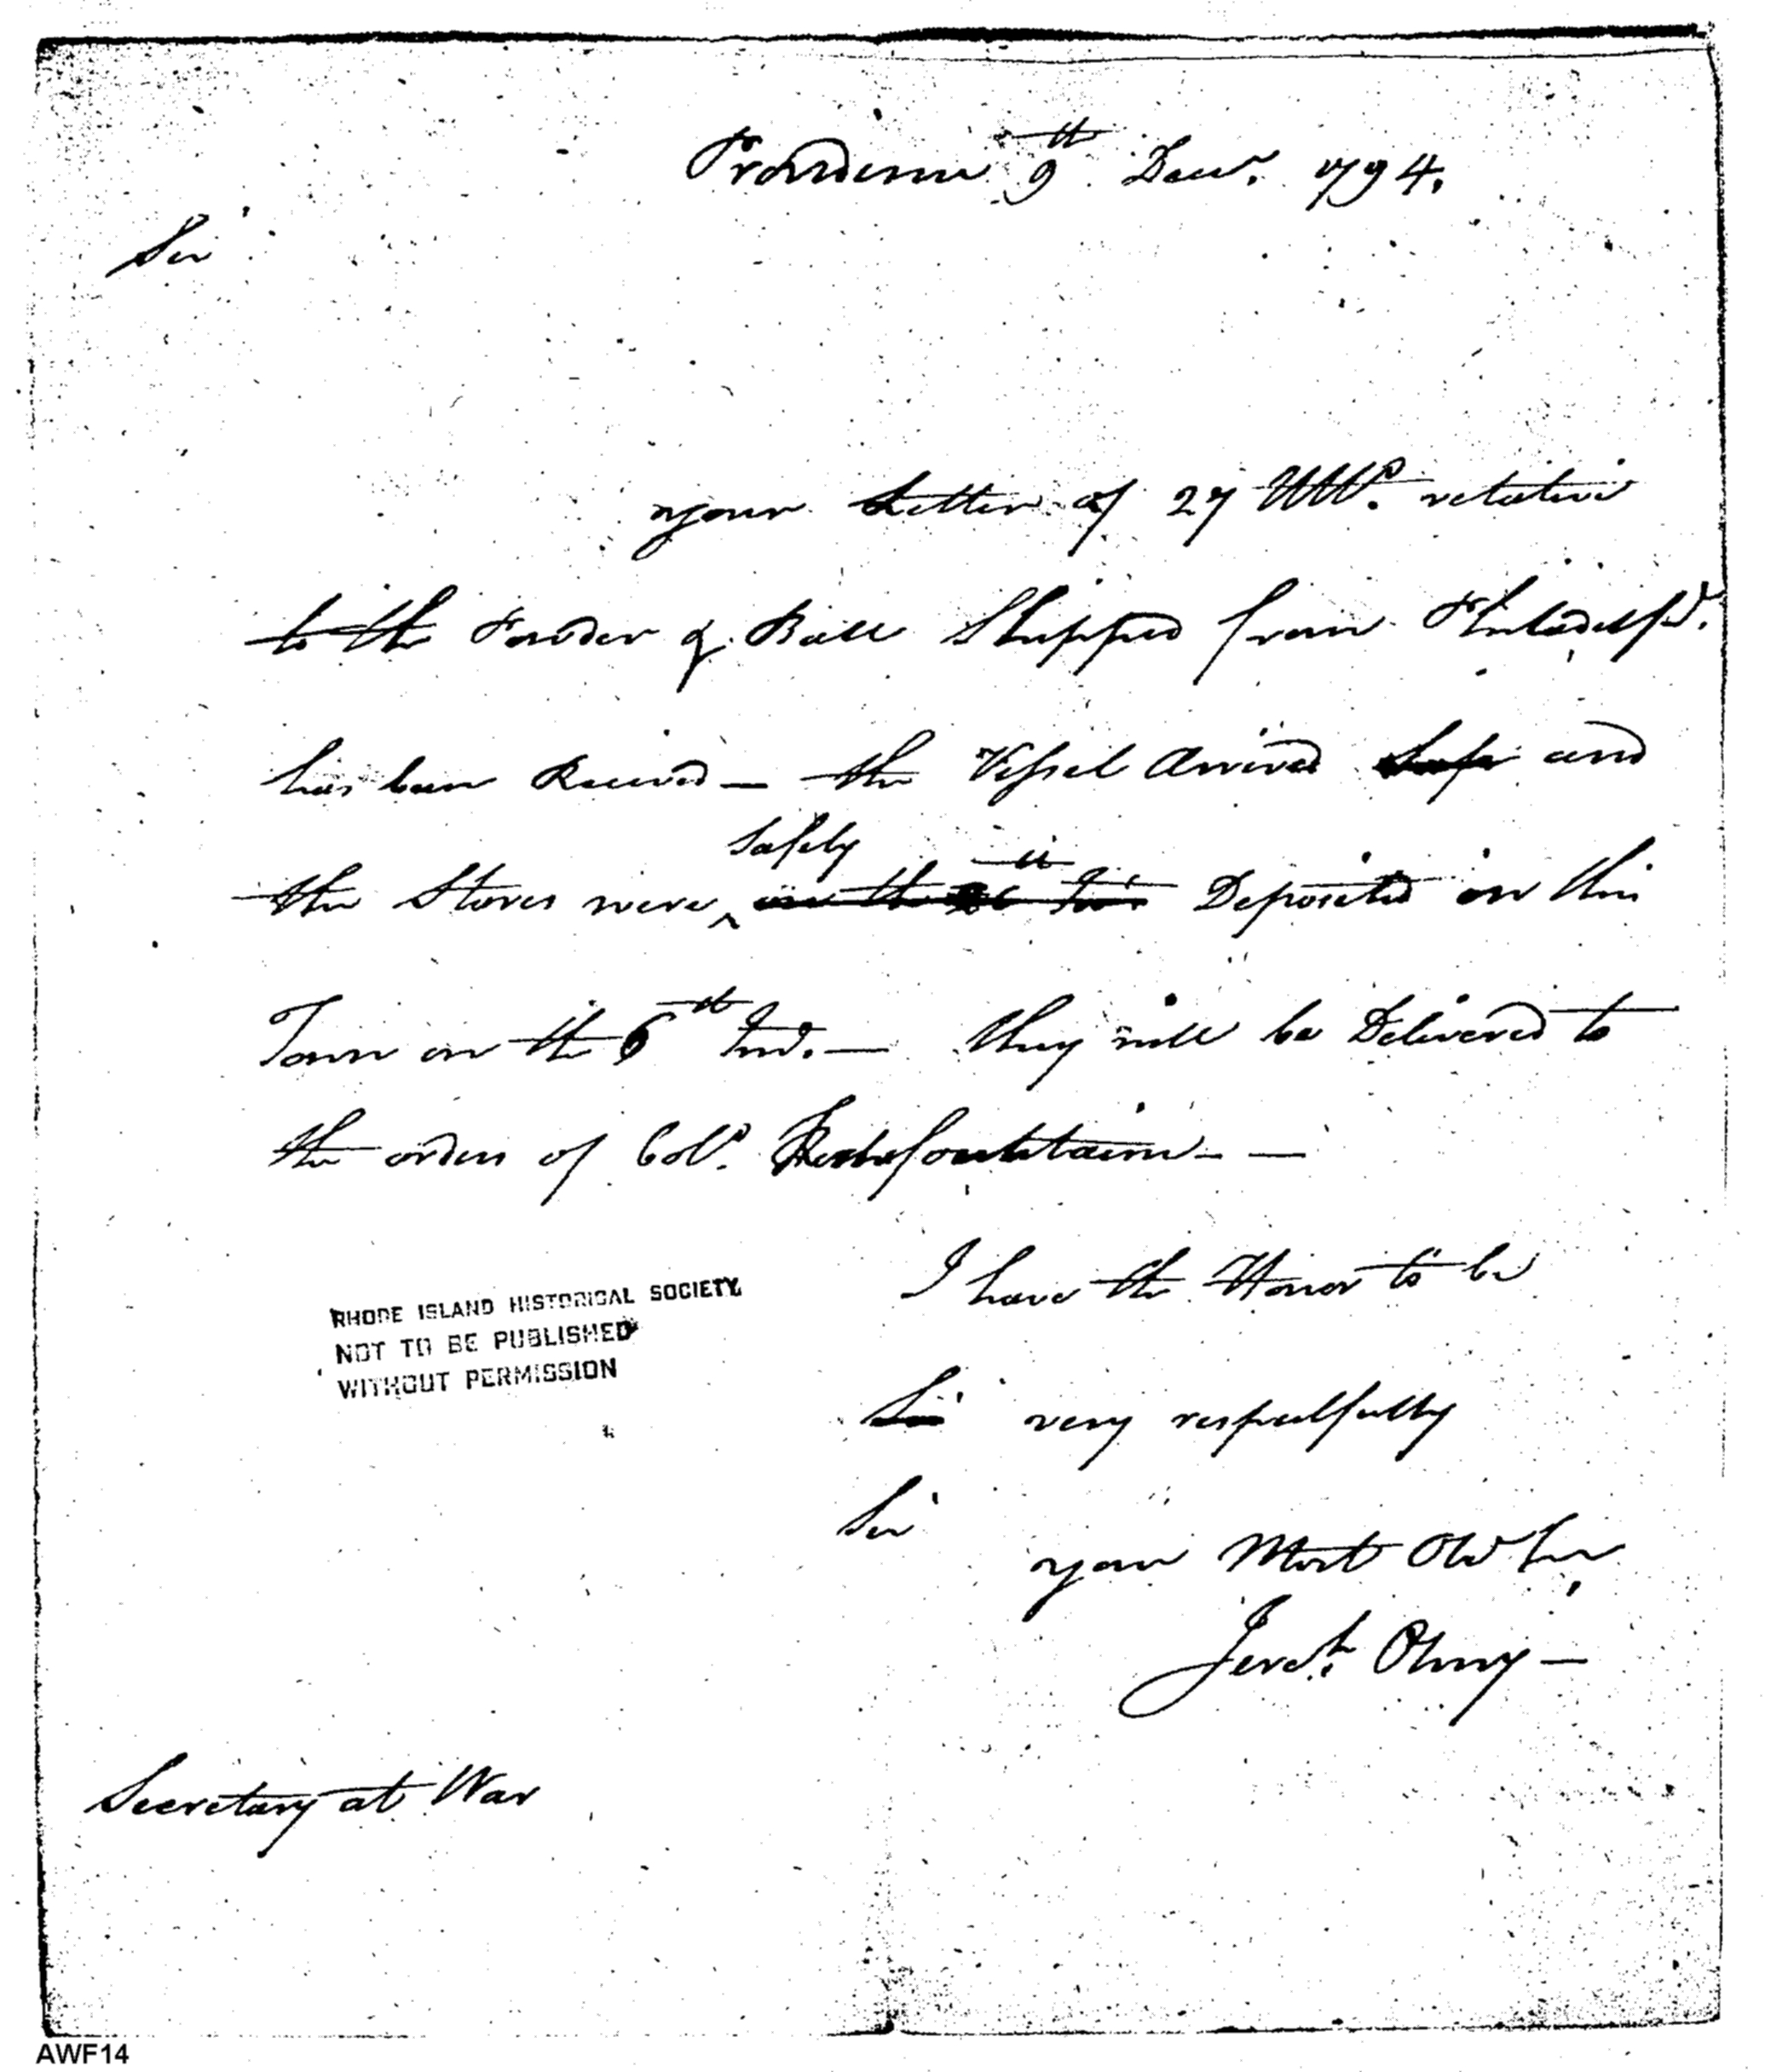 Providence 9th Decr. 1794.
Sir
your Letter of 27 Ulto. relative
to the Powder & Ball Shipped from Philadelpa.
has been Received — the Vessel Arrived safe and
safely
the Stores were ^ on the 6th Inst. Deposited in this
Town on the 6th Inst. — they will be Delivered to
the orders of Colo. Rochefountaine — —
RHODE ISLAND HISTORICAL SOCIETY
NOT TO BE PUBLISHED
WITHOUT PERMISSION
I have the Honor to be
Sir very respectfully
Sir
your Most Obt Ser
Jereh. Olney —
Secretary at War
AWF14